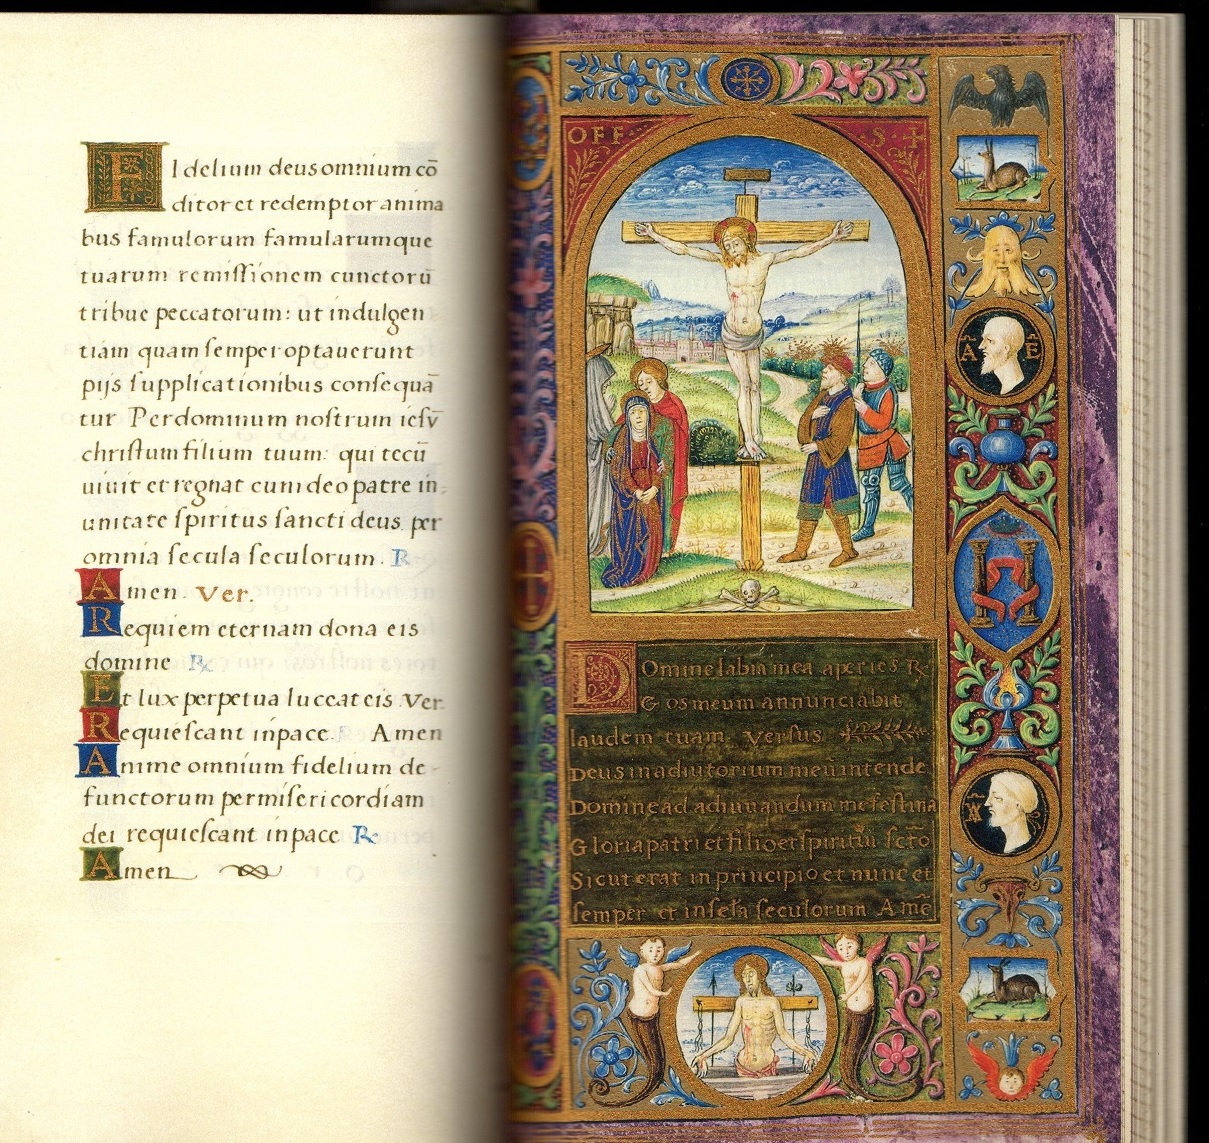 FIdelium deus omnium cō
ditor et redemptor anima
bus famulorum famularumque
tuarum remissionem cunctorū
tribue peccatorum: ut indulgen
tiam quam semper optauerunt
pijs supplicationibus consequā
tur Per dominum nostrum iesv̄
christum filium tuum: qui tecū
uiuit et regnat cum deo patre in
unitate spiritus sancti deus per
omnia secula seculorum. R
Amen. Ver.
Requiem eternam dona eis
domine R
Et lux perpetua luceat eis Ver
Requiescant in pace. R Amen
Anime omnium fidelium de
functorum per misericordiam
dei requiescant in pace R
Amen
OFF S ✝
A E
DOmine labia mea aperies R
Et os meum annunciabit
laudem tuam Versus
Deus in adiutorium meū intende
Domine ad adiuuandum me festina
Gloria patri et filio et spiritui scto
Sicut erat in principio et nunc et
semper et in secla seculorum Amē